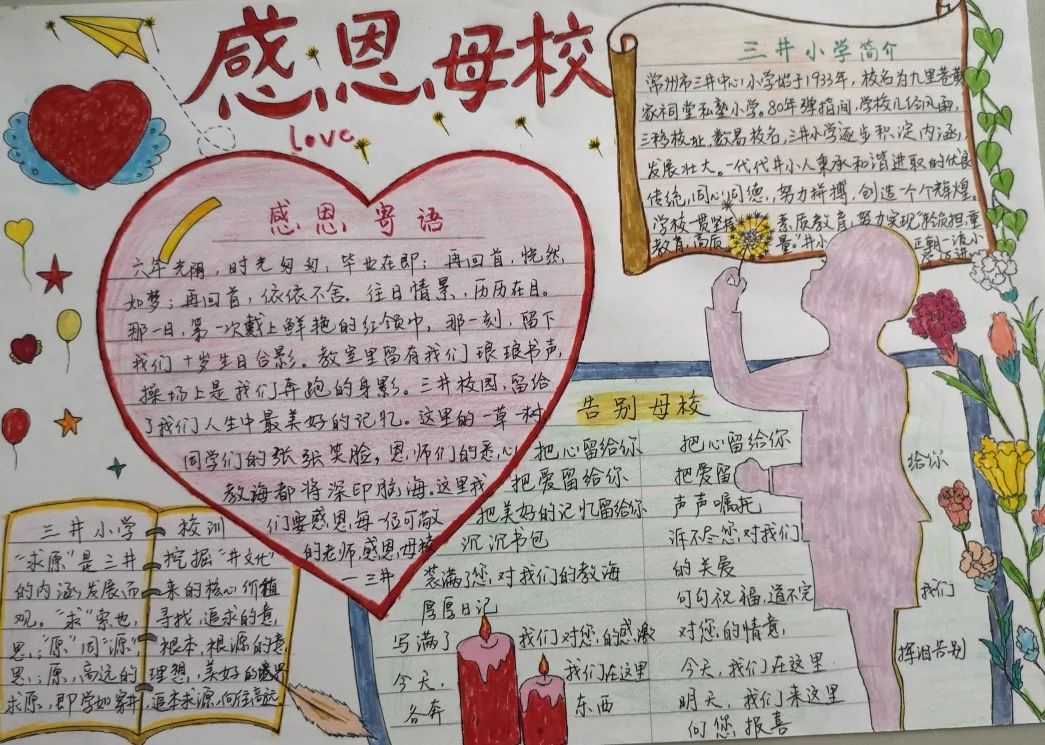 感恩母校
love
三井小学简介
常州市三井中心小学始于1933年，校名为九里巷黄
家祠堂私塾小学。80年弹指间，学校几经风雨，
三移校址，数易校名，三井小学逐步积淀内涵，
发展壮大。一代代井小人秉承和谐进取的优良
传统，同心同德，努力拼搏，创造一个个辉煌。
学校一贯坚持 素质教育，努力实现“轻负担，重
教育，高质 量。”井小 正朝一流小
感恩寄语
六年光阴，时光匆匆，毕业在即；再回首，恍然
如梦；再回首，依依不舍。往日情景，历历在目。
那一日，第一次戴上鲜艳的红领巾，那一刻，留下
我们十岁生日合影。教室里留有我们琅琅书声，
操场上是我们奔跑的身影。三井校园，留给
了我们人生中最美好的记忆。这里的一草一树
同学们的张张笑脸，恩师们的悉心
教诲都将深印脑海。这里我
们要感恩每一位可敬
的老师，感恩母校
—三井
告别母校
把心留给你
把爱留给你
把美好的记忆留给你
沉沉书包
装满了您，对我们的教诲
厚厚日记
写满了 我们对您的感激
今天， 我们在这里
各奔 东西
把心留给你
把爱留 给你
声声嘱托
诉不尽您，对我们
的关爱 我们
句句祝福，道不完
对您，的情意， 挥泪告别
今天，我们在这里
明天，我们来这里
向您报喜
三井小学 校训
“求原”是三井 挖掘“井文化”
的内涵发展而 来的核心价值
观。“求”索也， 寻找，追求的意
思；“原”同“源” 根本，根源的意
思；原，高远的 理想，美好的
求原，即学如穿井， 追本求源，向往高远